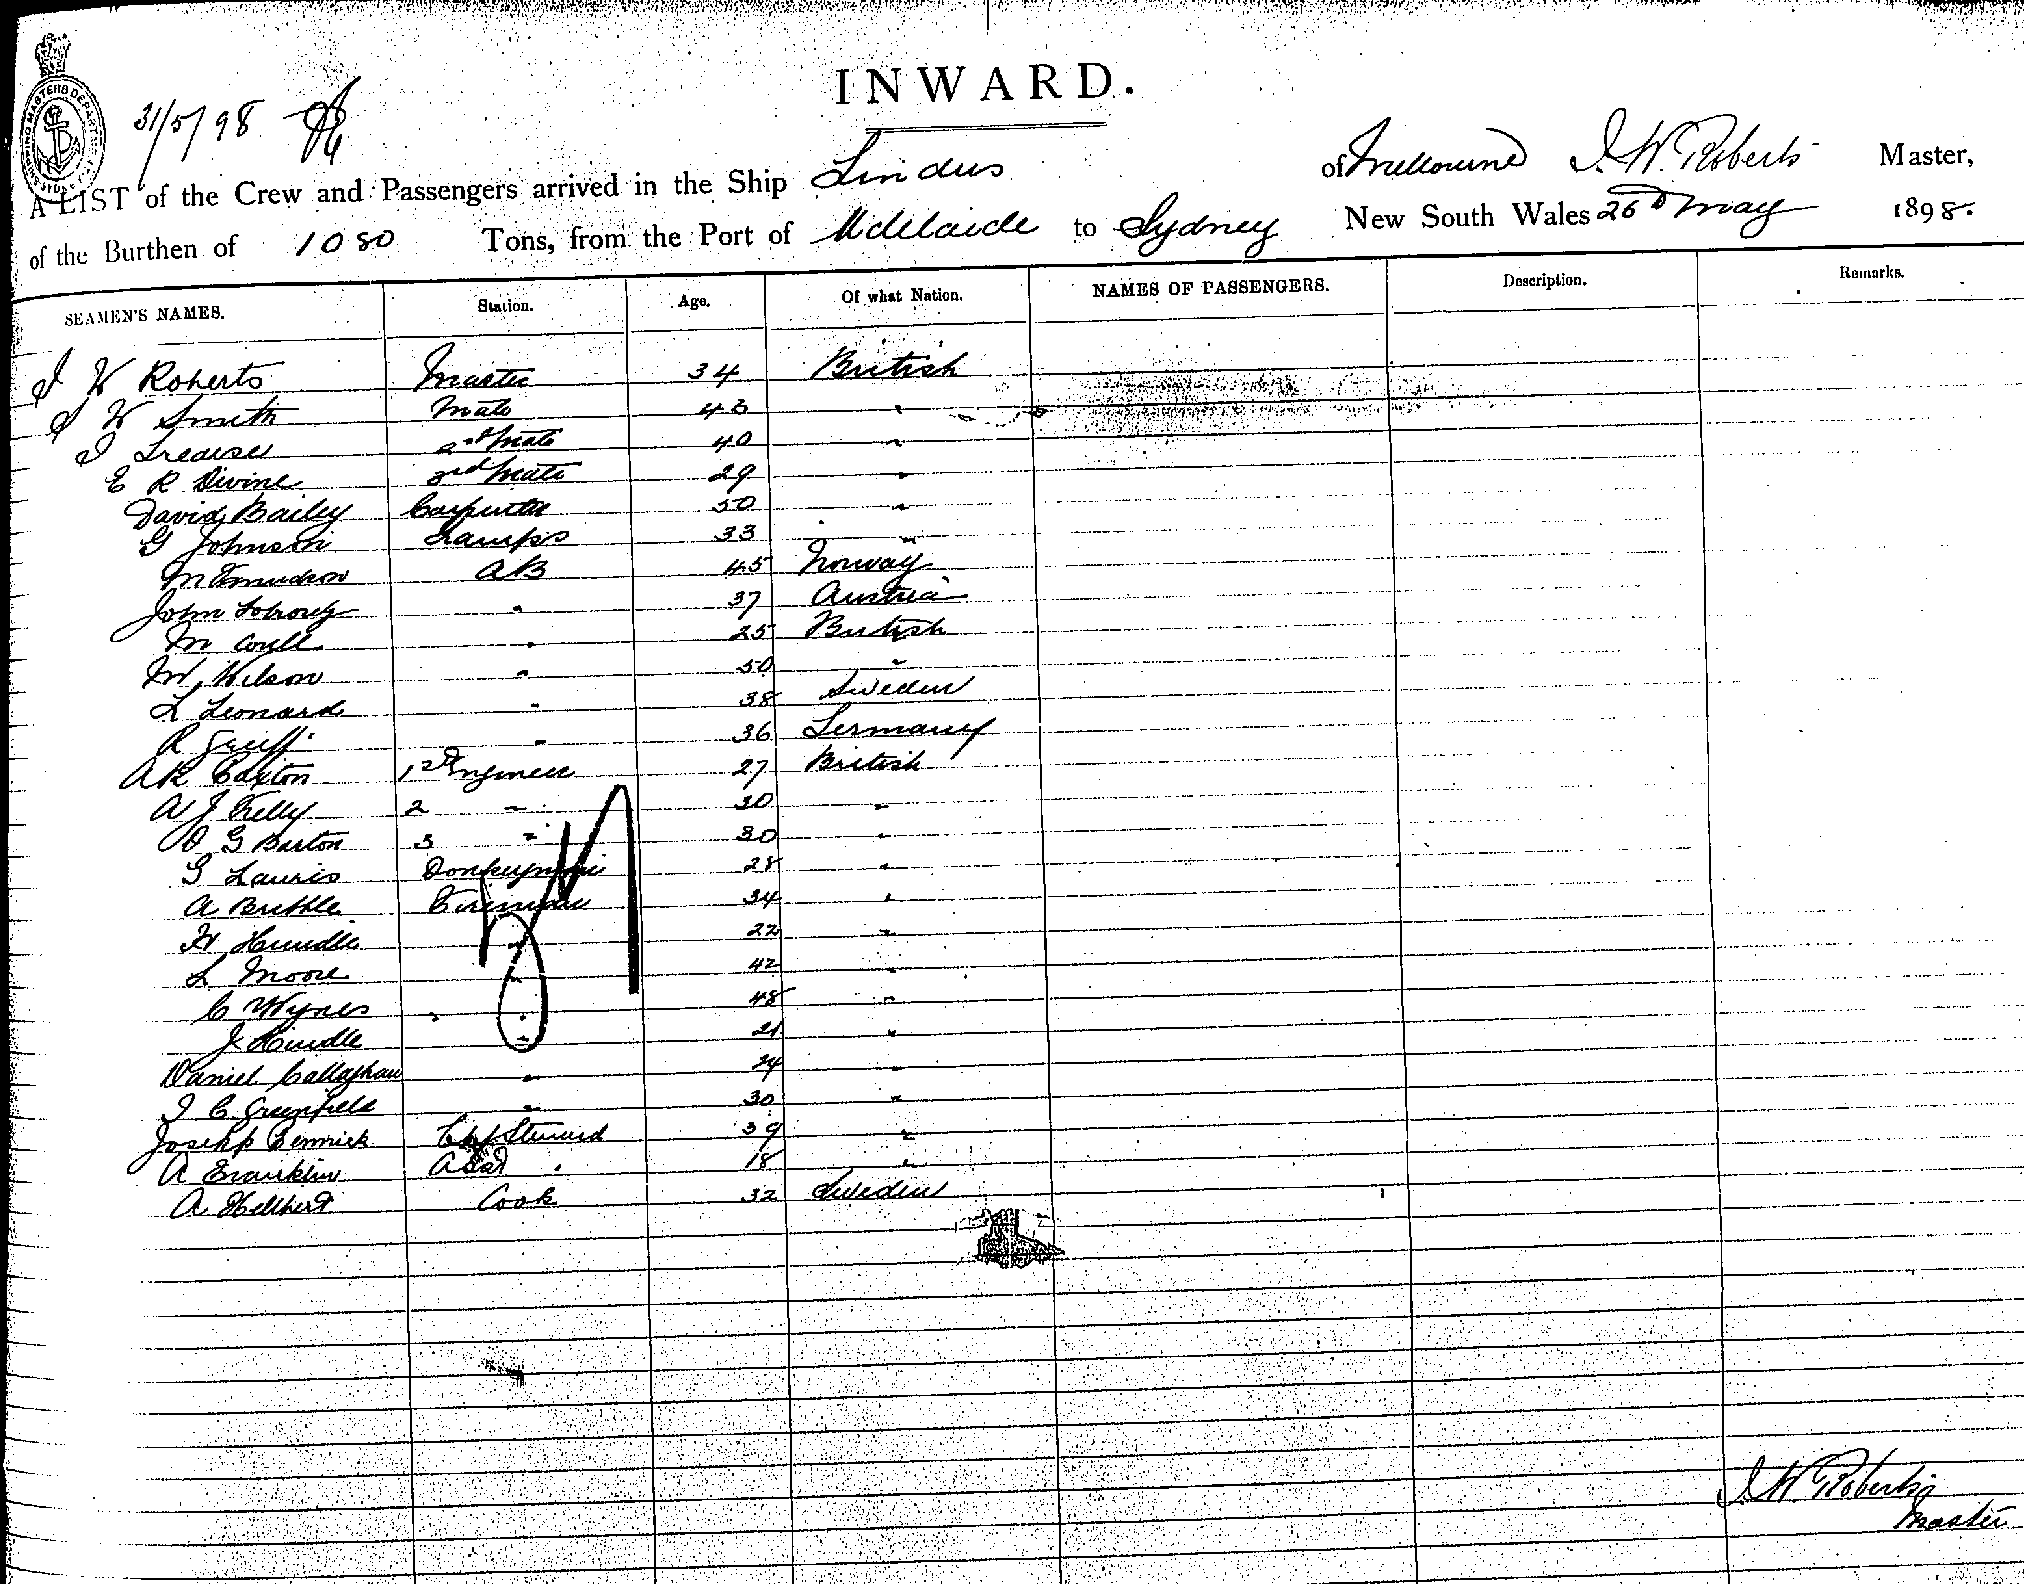 INWARD.
31/5/98
A LIST of the Crew and Passengers arrived in the Ship Lindus of Melbourne J. W. Roberts Master,
of the Burthen of 1080 Tons, from the Port of Adelaide to Sydney New South Wales 26th May 1898.
SEAMEN'S NAMES. Station. Age. Of what Nation. NAMES OF PASSENGERS. Description. Remarks.
J W Roberts Master 34 British
J W Smith Mate 43 "
J 2nd Mate 40 "
E R Divine 3rd Mate 29 "
David Bailey Carpenter 50 "
G Johnson Lamps 33 "
M AB 45 Norway
John " 37 Austria
M " 25 British
W Wilson " 50 "
L Leonard " 38 Sweden
R " 36 Germany
A R Caxton 1st Engineer 27 British
A J Kelly 2 " 30 "
O G Barton 3 " 30 "
G Lauris Donkeyman 28 "
A Fireman 34 "
H Hindle " 22 "
L Moore " 42 "
C Wynes " 48 "
J Hindle " 21 "
Daniel Callaghan " 24 "
J C Greenfield " 30 "
Joseph Chf Steward 39 "
A Franklin 18 "
A Cook 32 Sweden
J. W. Roberts
Master